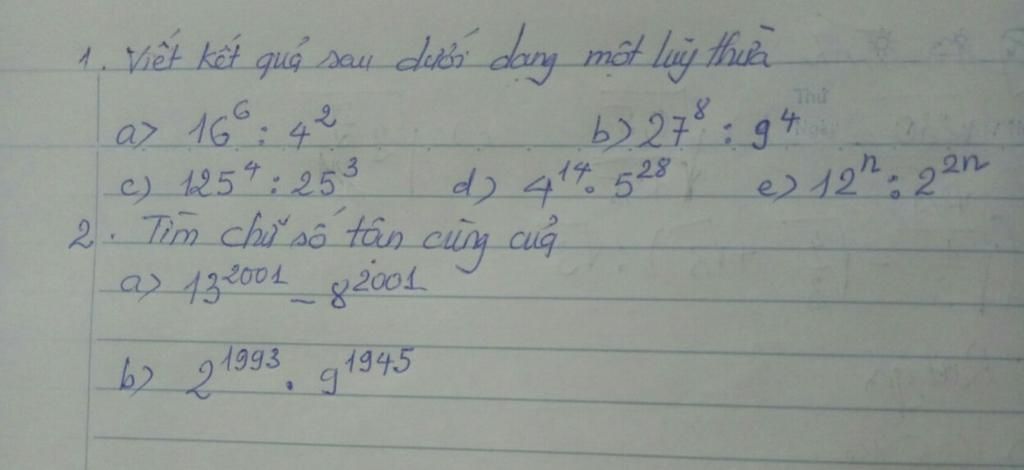 1. Viết kết quả sau dưới dạng một lũy thừa
a> 16⁶ : 4² b) 27⁸ : 9⁴
c) 125⁴ : 25³ d) 4¹⁴ . 5²⁸ e) 12ⁿ : 2²ⁿ
2. Tìm chữ số tận cùng củả
a> 13²⁰⁰¹ - 8²⁰⁰¹
b) 2¹⁹⁹³ . 9¹⁹⁴⁵